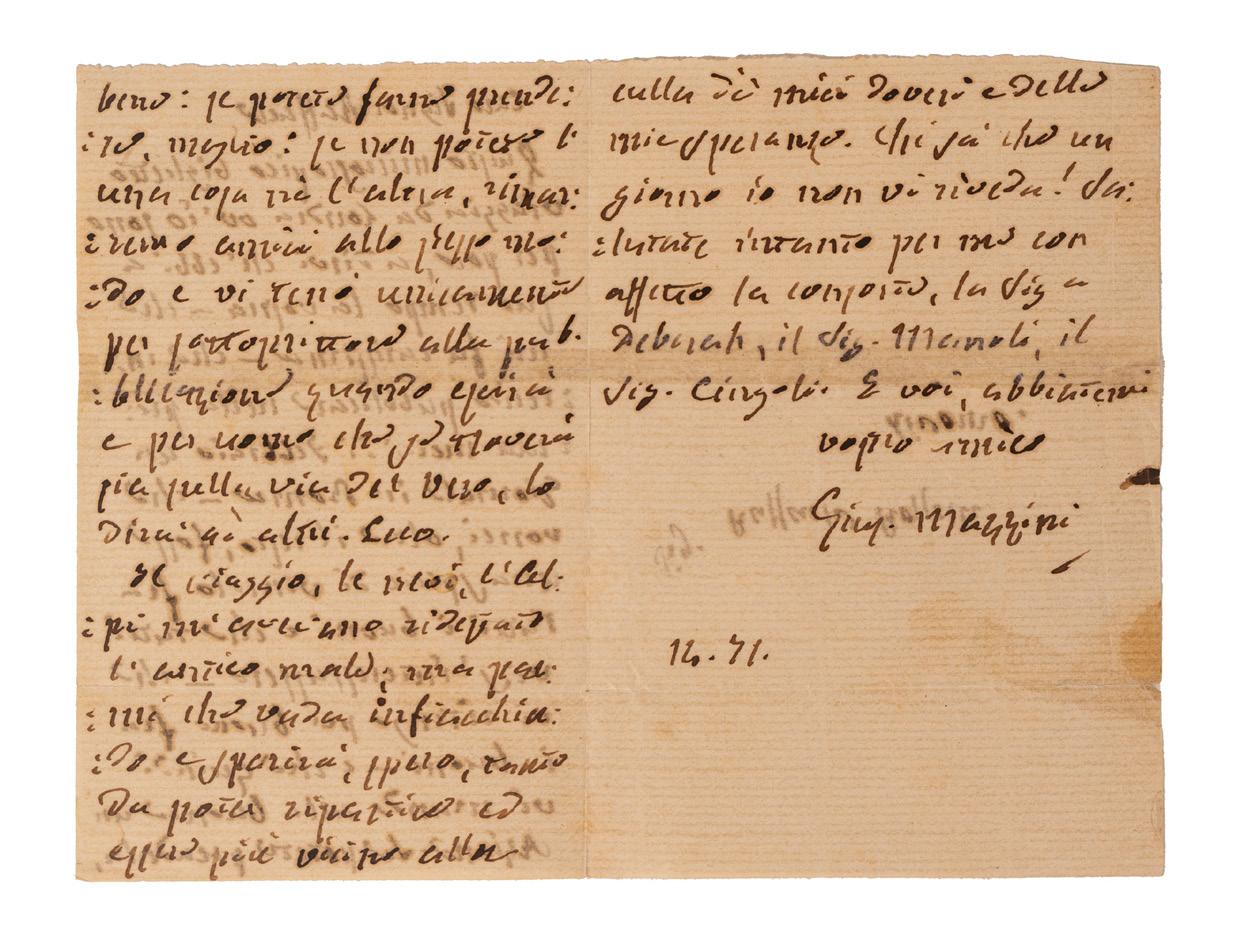 bene: se potete farne prende:
:re, meglio: se non potete l'
una cosa nè l'altra, rimar:
:remo amici allo stesso mo:
:do e vi terrò unicamente
per sottoscrittore alla pub:
:blicazione quando escirà
e per uomo che se troverà
sia sulla via del Vero, lo
dirà agli altri. Ecco.
Il viaggio, le nevi, l'Al:
:pi m'avevano ridestato
l'antico male; ma par:
:mi che vada infiacchia:
:do e sparirà, spero, tanto
da poter ripartire ed
esser più vicino alla
culla dè miei doveri e delle
mie speranze. Chi sà che un
giorno io non vi riveda! Sa:
:lutate intanto per me con
affetto la consorte, la Sig.a
Deborah, il Sig. Manoli, il
Sig. Cingoli. E voi, abbiatemi
vostro amico
Gius. Mazzini
71.